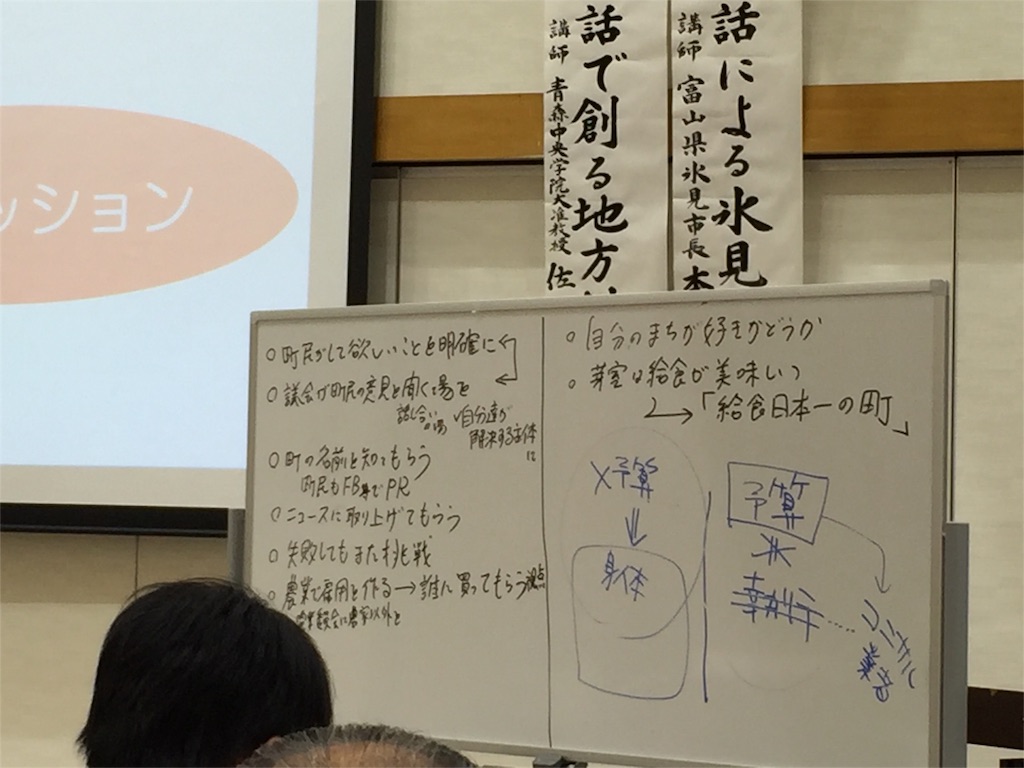 ッション
話による氷見
講師 富山県氷見市長 本
話で創る地方
講師 青森中央学院大准教授 佐
○町民がして欲しいことを明確に
○議会が町民の意見を聞く場を
話し合いの場
自分達が
解決する主体に
○町の名前を知ってもらう
町民もFB等でPR
○ニュースに取り上げてもらう
○失敗してもまた挑戦
○農業で雇用を作る→誰に買ってもらう視点
○自分のまちが好きかどうか
○芽室は給食が美味い
→「給食日本一の町」
予算
身体
予算
執行